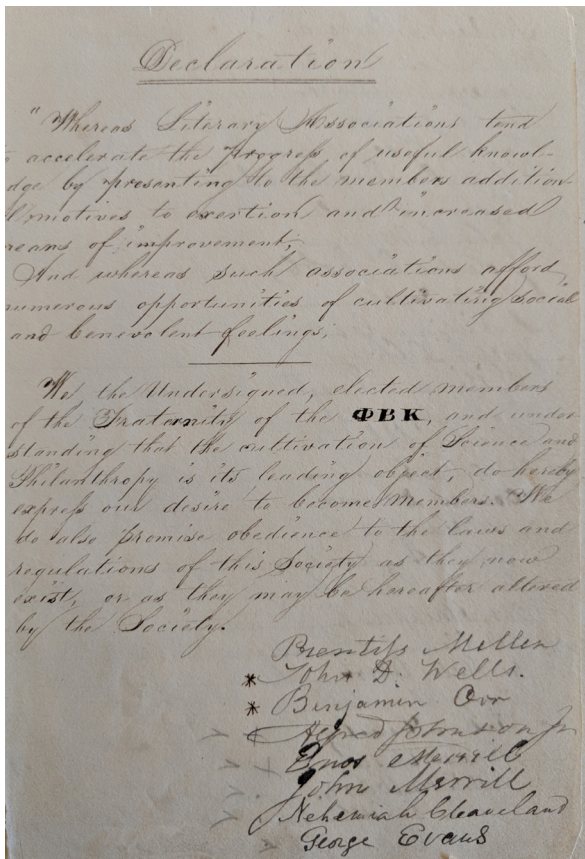 Declaration
"Whereas Literary Associations tend
accelerate the progress of useful knowl-
dge by presenting to the members addition
motives to exertion and increased
means of improvement;
And whereas such associations afford
numerous opportunities of cultivating social
and benevolent feelings;
We the Undersigned, elected members
of the Fraternity of the ΦΒΚ, and under
standing that the cultivation of Science and
Philanthropy is its leading object, do hereby
express our desire to become members. We
do also promise obedience to the laws and
regulations of this Society as they now
exist, or as they may be hereafter altered
by the Society.
Prentiss Mellen
* John D. Wells.
* Benjamin Orr
Alfred Johnson Jr
Enos Merrill
John Merrill
Nehemiah Cleaveland
George Evans